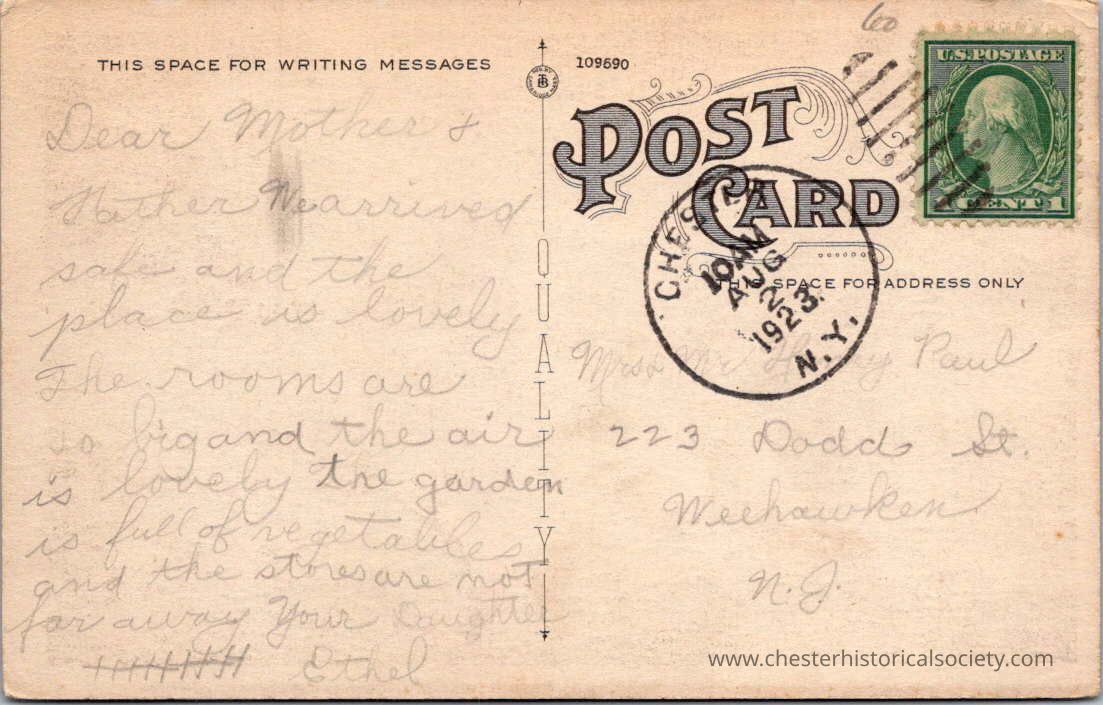 THIS SPACE FOR WRITING MESSAGES
Dear Mother &
Father We arrived
safe and the
place is lovely
The rooms are
so big and the air
is lovely the garden
is full of vegetables
and the stores are not
far away Your Daughter
Ethel
QUALITY
109690
60
POST
CARD
U.S. POSTAGE
1 CENT 1
CHESTER
10 AM
AUG
2
1923
N.Y.
THIS SPACE FOR ADDRESS ONLY
Mrs & Mr Henry Paul
223 Dodd St.
Weehawken
N.J.
www.chesterhistoricalsociety.com